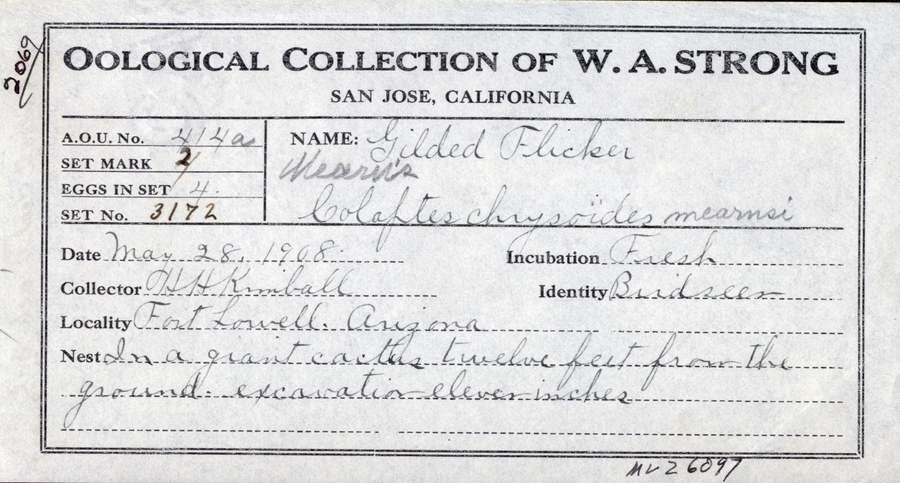 2069
OOLOGICAL COLLECTION OF W. A. STRONG
SAN JOSE, CALIFORNIA
A.O.U. No. 414a
SET MARK 2/4
EGGS IN SET 4.
SET No. 3172
NAME: Gilded Flicker
Mearn's
Colaptes chrysoïdes mearnsi
Date May 28, 1908.
Incubation Fresh
Collector H H Kimball
Identity Bird seen
Locality Fort Lowell. Arizona
Nest In a giant cactus twelve feet from the
ground. excavation eleven inches
MVZ 6097